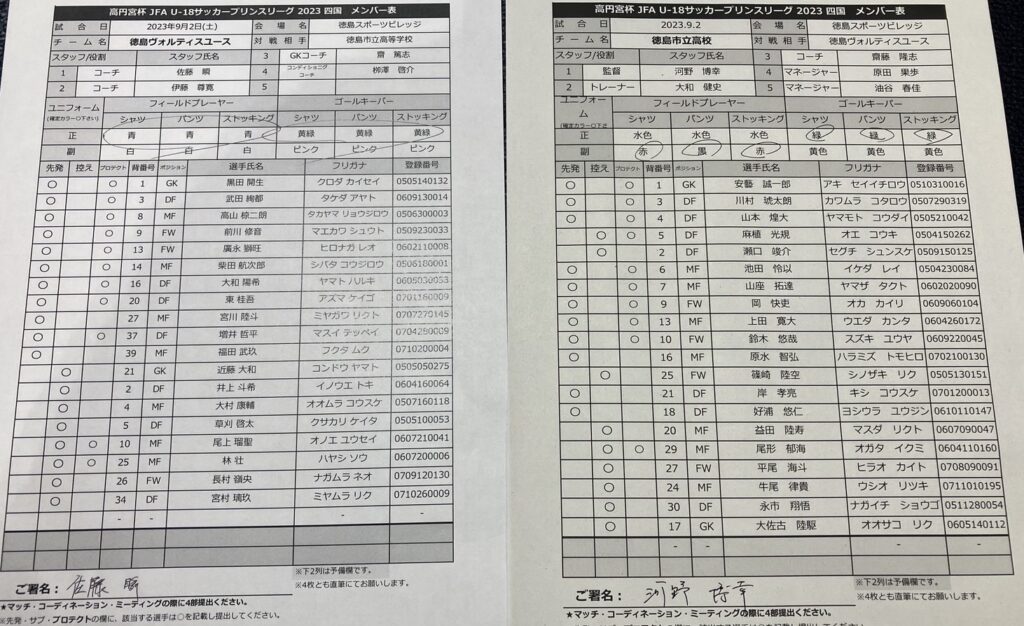 高円宮杯 JFA U-18サッカープリンスリーグ 2023 四国 メンバー表
試合日 2023年9月2日(土) 会場名 徳島スポーツビレッジ
チーム名 徳島ヴォルティスユース 対戦相手 徳島市立高等学校
スタッフ/役割 スタッフ氏名 3 GKコーチ 齋 篤志
1 コーチ 佐藤 瞬 4 コンディショニングコーチ 栁澤 啓介
2 コーチ 伊藤 尊寛 5
ユニフォーム (確定カラー○下さい) フィールドプレーヤー ゴールキーパー
シャツ パンツ ストッキング シャツ パンツ ストッキング
正 青 青 青 黄緑 黄緑 黄緑
副 白 白 白 ピンク ピンク ピンク
先発 控え プロテクト 背番号 ポジション 選手氏名 フリガナ 登録番号
○ ○ 1 GK 黒田 開生 クロダ カイセイ 0505140132
○ ○ 3 DF 武田 絢都 タケダ アヤト 0609130014
○ ○ 8 MF 高山 椋二朗 タカヤマ リョウジロウ 0506300003
○ ○ 9 FW 前川 修音 マエカワ シュウト 0509230033
○ ○ 13 FW 廣永 獅旺 ヒロナガ レオ 0602110008
○ ○ 14 MF 柴田 航次郎 シバタ コウジロウ 0506180001
○ ○ 16 DF 大和 陽希 ヤマト ハルキ 0605030053
○ ○ 20 DF 東 桂吾 アズマ ケイゴ 0701160009
○ 27 MF 宮川 陸斗 ミヤガワ リクト 0707270145
○ ○ 37 DF 増井 哲平 マスイ テッペイ 0704250009
○ 39 MF 福田 武玖 フクタ ムク 0710200004
○ 21 GK 近藤 大和 コンドウ ヤマト 0505050275
○ 2 DF 井上 斗希 イノウエ トキ 0604160064
○ 4 MF 大村 康輔 オオムラ コウスケ 0507160118
○ 5 DF 草刈 啓太 クサカリ ケイタ 0505100053
○ ○ 10 MF 尾上 瑠聖 オノエ ユウセイ 0607210041
○ ○ 25 MF 林 壮 ハヤシ ソウ 0607200006
○ 26 FW 長村 嶺央 ナガムラ ネオ 0709120130
○ 34 DF 宮村 璃玖 ミヤムラ リク 0710260009
- -
※下2列は予備欄です。
※4枚とも直筆にてお願いします。
ご署名: 佐藤 瞬
★マッチ・コーディネーション・ミーティングの際に4部提出ください。
※先発・サブ・プロテクトの欄に、該当する選手は○を記載し提出してください。
高円宮杯 JFA U-18サッカープリンスリーグ 2023 四国 メンバー表
試合日 2023.9.2 会場名 徳島スポーツビレッジ
チーム名 徳島市立高校 対戦相手 徳島ヴォルティスユース
スタッフ/役割 スタッフ氏名 3 コーチ 齋藤 隆志
1 監督 河野 博幸 4 マネージャー 原田 果歩
2 トレーナー 大和 健史 5 マネージャー 油谷 春佳
ユニフォーム (確定カラー○下さ フィールドプレーヤー ゴールキーパー
シャツ パンツ ストッキング シャツ パンツ ストッキング
正 水色 水色 水色 緑 緑 緑
副 赤 黒 赤 黄色 黄色 黄色
先発 控え プロテクト 背番号 ポジション 選手氏名 フリガナ 登録番号
○ ○ 1 GK 安藝 誠一郎 アキ セイイチロウ 0510310016
○ ○ 3 DF 川村 琥太朗 カワムラ コタロウ 0507290319
○ ○ 4 DF 山本 煌大 ヤマモト コウダイ 0505210042
○ ○ 5 DF 麻植 光規 オエ コウキ 0504150262
○ 2 DF 瀬口 竣介 セグチ シュンスケ 0509150125
○ ○ 6 MF 池田 怜以 イケダ レイ 0504230084
○ ○ 7 MF 山座 拓達 ヤマザ タクト 0602020090
○ ○ 9 FW 岡 快吏 オカ カイリ 0609060104
○ ○ 13 MF 上田 寛大 ウエダ カンタ 0604260172
○ ○ 10 FW 鈴木 悠哉 スズキ ユウヤ 0609220045
○ 16 MF 原水 智弘 ハラミズ トモヒロ 0702100130
○ 25 FW 篠崎 陸空 シノザキ リク 0505130151
○ 21 DF 岸 孝亮 キシ コウスケ 0701200013
○ 18 DF 好浦 悠仁 ヨシウラ ユウジン 0610110147
○ 20 MF 益田 陸寿 マスダ リクト 0607090047
○ ○ 29 MF 尾形 郁海 オガタ イクミ 0604110160
○ 27 FW 平尾 海斗 ヒラオ カイト 0708090091
○ 24 MF 牛尾 律貴 ウシオ リツキ 0711010195
○ 30 DF 永市 翔悟 ナガイチ ショウゴ 0511280054
○ 17 GK 大佐古 陸駆 オオサコ リク 0605140112
- -
※下2列は予備欄です。
※4枚とも直筆にてお願いします。
ご署名: 河野 博幸
★マッチ・コーディネーション・ミーティングの際に4部提出ください。